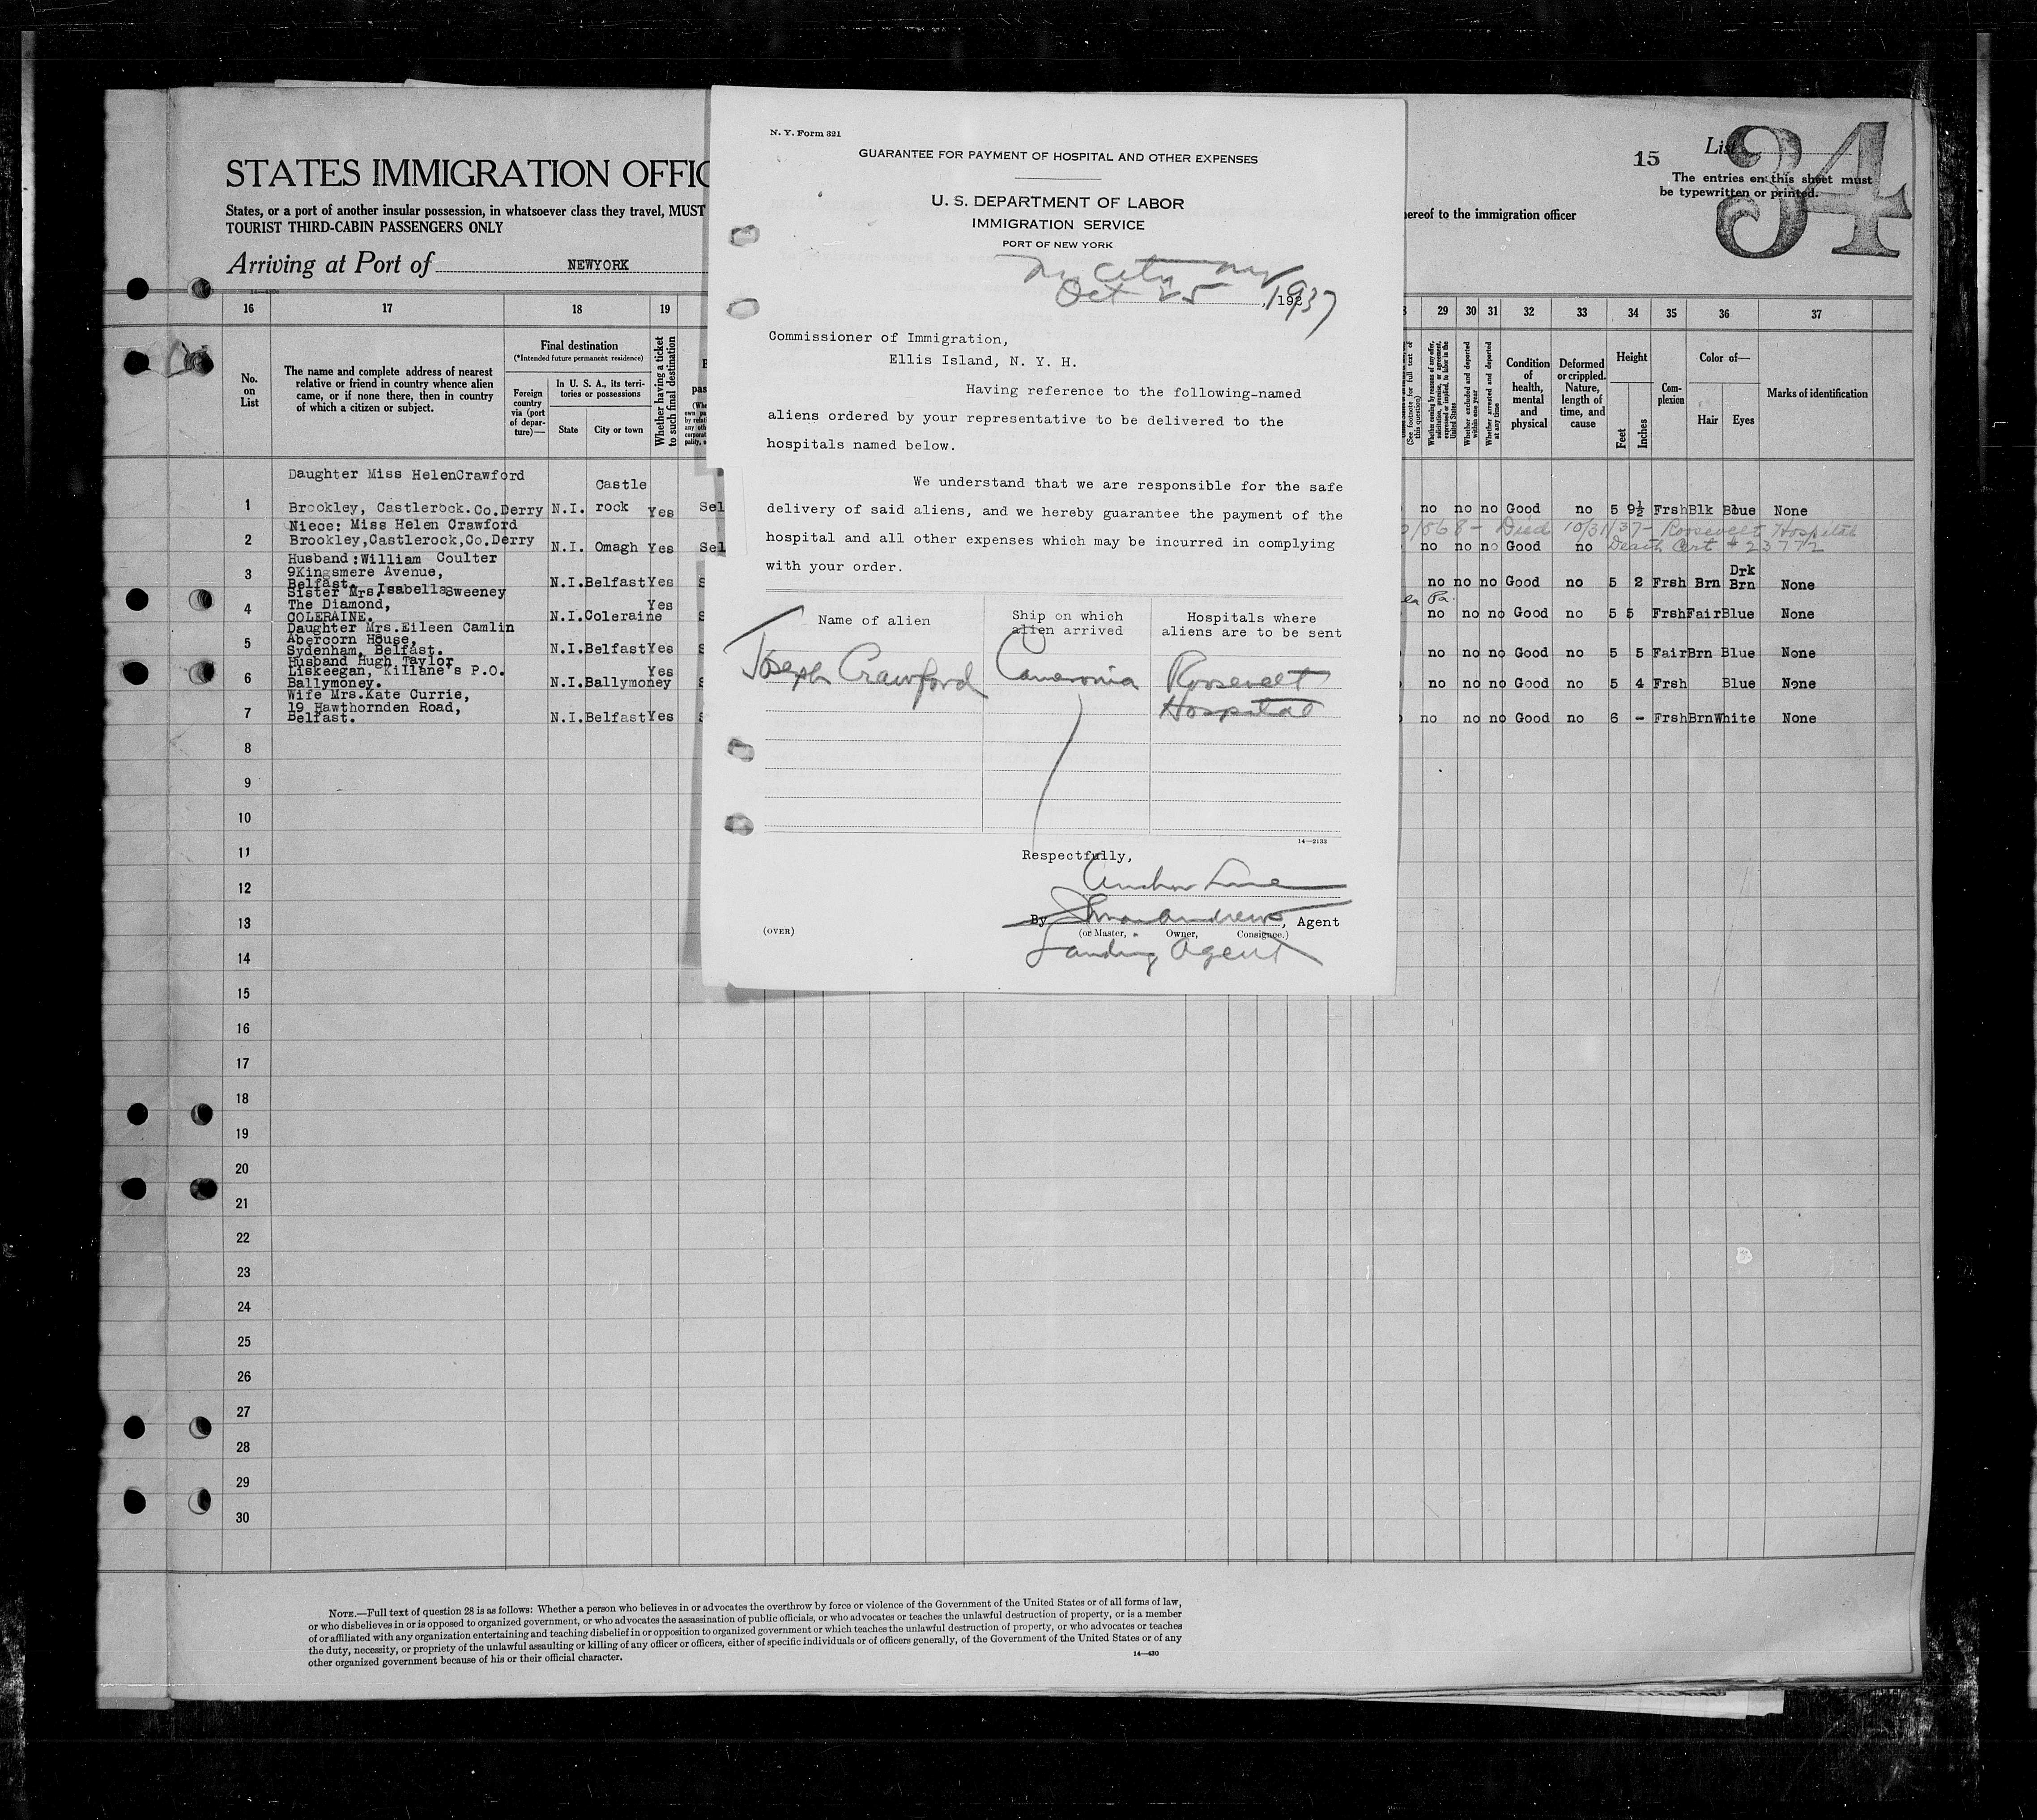 STATES IMMIGRATION OFFIC
States, or a port of another insular possession, in whatsoever class they travel, MUST
hereof to the immigration officer
TOURIST THIRD-CABIN PASSENGERS ONLY
Arriving at Port of NEWYORK
15
List
34
The entries on this sheet must
be typewritten or printed.
14-430
16 17 18 19
29 30 31 32 33 34 35 36 37
No.
on
List
The name and complete address of nearest
relative or friend in country whence alien
came, or if none there, then in country
of which a citizen or subject.
Final destination
(*Intended future permanent residence)
Foreign
country
via (port
of depar-
ture)—
In U. S. A., its terri-
tories or possessions
State
City or town
Whether having a ticket
to such final destination
(See footnote for full text of
this question)
Whether coming by reason of any offer,
solicitation, promise, or agreement,
expressed or implied, to labor in the
United States
Whether excluded and deported
within one year
Whether arrested and deported
at any time
Condition
of
health,
mental
and
physical
Deformed
or crippled.
Nature,
length of
time, and
cause
Height
Feet
Inches
Com-
plexion
Color of—
Hair
Eyes
Marks of identification
Daughter Miss HelenCrawford
Castle
1 Brookley, Castlerock.Co.Derry N.I. rock Yes Sel
no no no Good no 5 9½ Frsh Blk Blue None
Niece: Miss Helen Crawford
868 - Died 10/31/37 - Roosevelt Hospital
2 Brookley,Castlerock,Co.Derry N.I. Omagh Yes Sel
no no no Good no Death Cert # 23772
Husband:William Coulter
3 9Kingsmere Avenue,
Belfast. N.I.Belfast Yes S
no no no Good no 5 2 Frsh Brn Drk Brn None
Sister Mrs.IsabellaSweeney
4 The Diamond,
COLERAINE. N.I.Coleraine Yes S
Pa.
no no no Good no 5 5 Frsh Fair Blue None
Daughter Mrs.Eileen Camlin
5 Abercorn House,
Sydenham, Belfast. N.I.Belfast Yes S
no no no Good no 5 5 Fair Brn Blue None
Husband Hugh Taylor
6 Liskeegan, Killane's P.O.
Ballymoney. N.I.Ballymoney Yes S
no no no Good no 5 4 Frsh Blue None
Wife Mrs.Kate Currie,
7 19 Hawthornden Road,
Belfast. N.I.Belfast Yes S
no no no Good no 6 - Frsh Brn White None
8
9
10
11
12
13
14
15
16
17
18
19
20
21
22
23
24
25
26
27
28
29
30
N. Y. Form 321
GUARANTEE FOR PAYMENT OF HOSPITAL AND OTHER EXPENSES
U. S. DEPARTMENT OF LABOR
IMMIGRATION SERVICE
PORT OF NEW YORK
Ny City Ny
Oct 25, 1937
Commissioner of Immigration,
Ellis Island, N. Y. H.
Having reference to the following-named
aliens ordered by your representative to be delivered to the
hospitals named below.
We understand that we are responsible for the safe
delivery of said aliens, and we hereby guarantee the payment of the
hospital and all other expenses which may be incurred in complying
with your order.
Name of alien
Ship on which
alien arrived
Hospitals where
aliens are to be sent
Joseph Crawford Cameronia Roosevelt
Hospital
14—2133
Respectfully,
Anchor Line
By Andrews, Agent
(or Master, Owner, Consignee.)
Landing Agent
(OVER)
NOTE.—Full text of question 28 is as follows: Whether a person who believes in or advocates the overthrow by force or violence of the Government of the United States or of all forms of law,
or who disbelieves in or is opposed to organized government, or who advocates the assassination of public officials, or who advocates or teaches the unlawful destruction of property, or is a member
of or affiliated with any organization entertaining and teaching disbelief in or opposition to organized government or which teaches the unlawful destruction of property, or who advocates or teaches
the duty, necessity, or propriety of the unlawful assaulting or killing of any officer or officers, either of specific individuals or of officers generally, of the Government of the United States or of any
other organized government because of his or their official character.
14—430